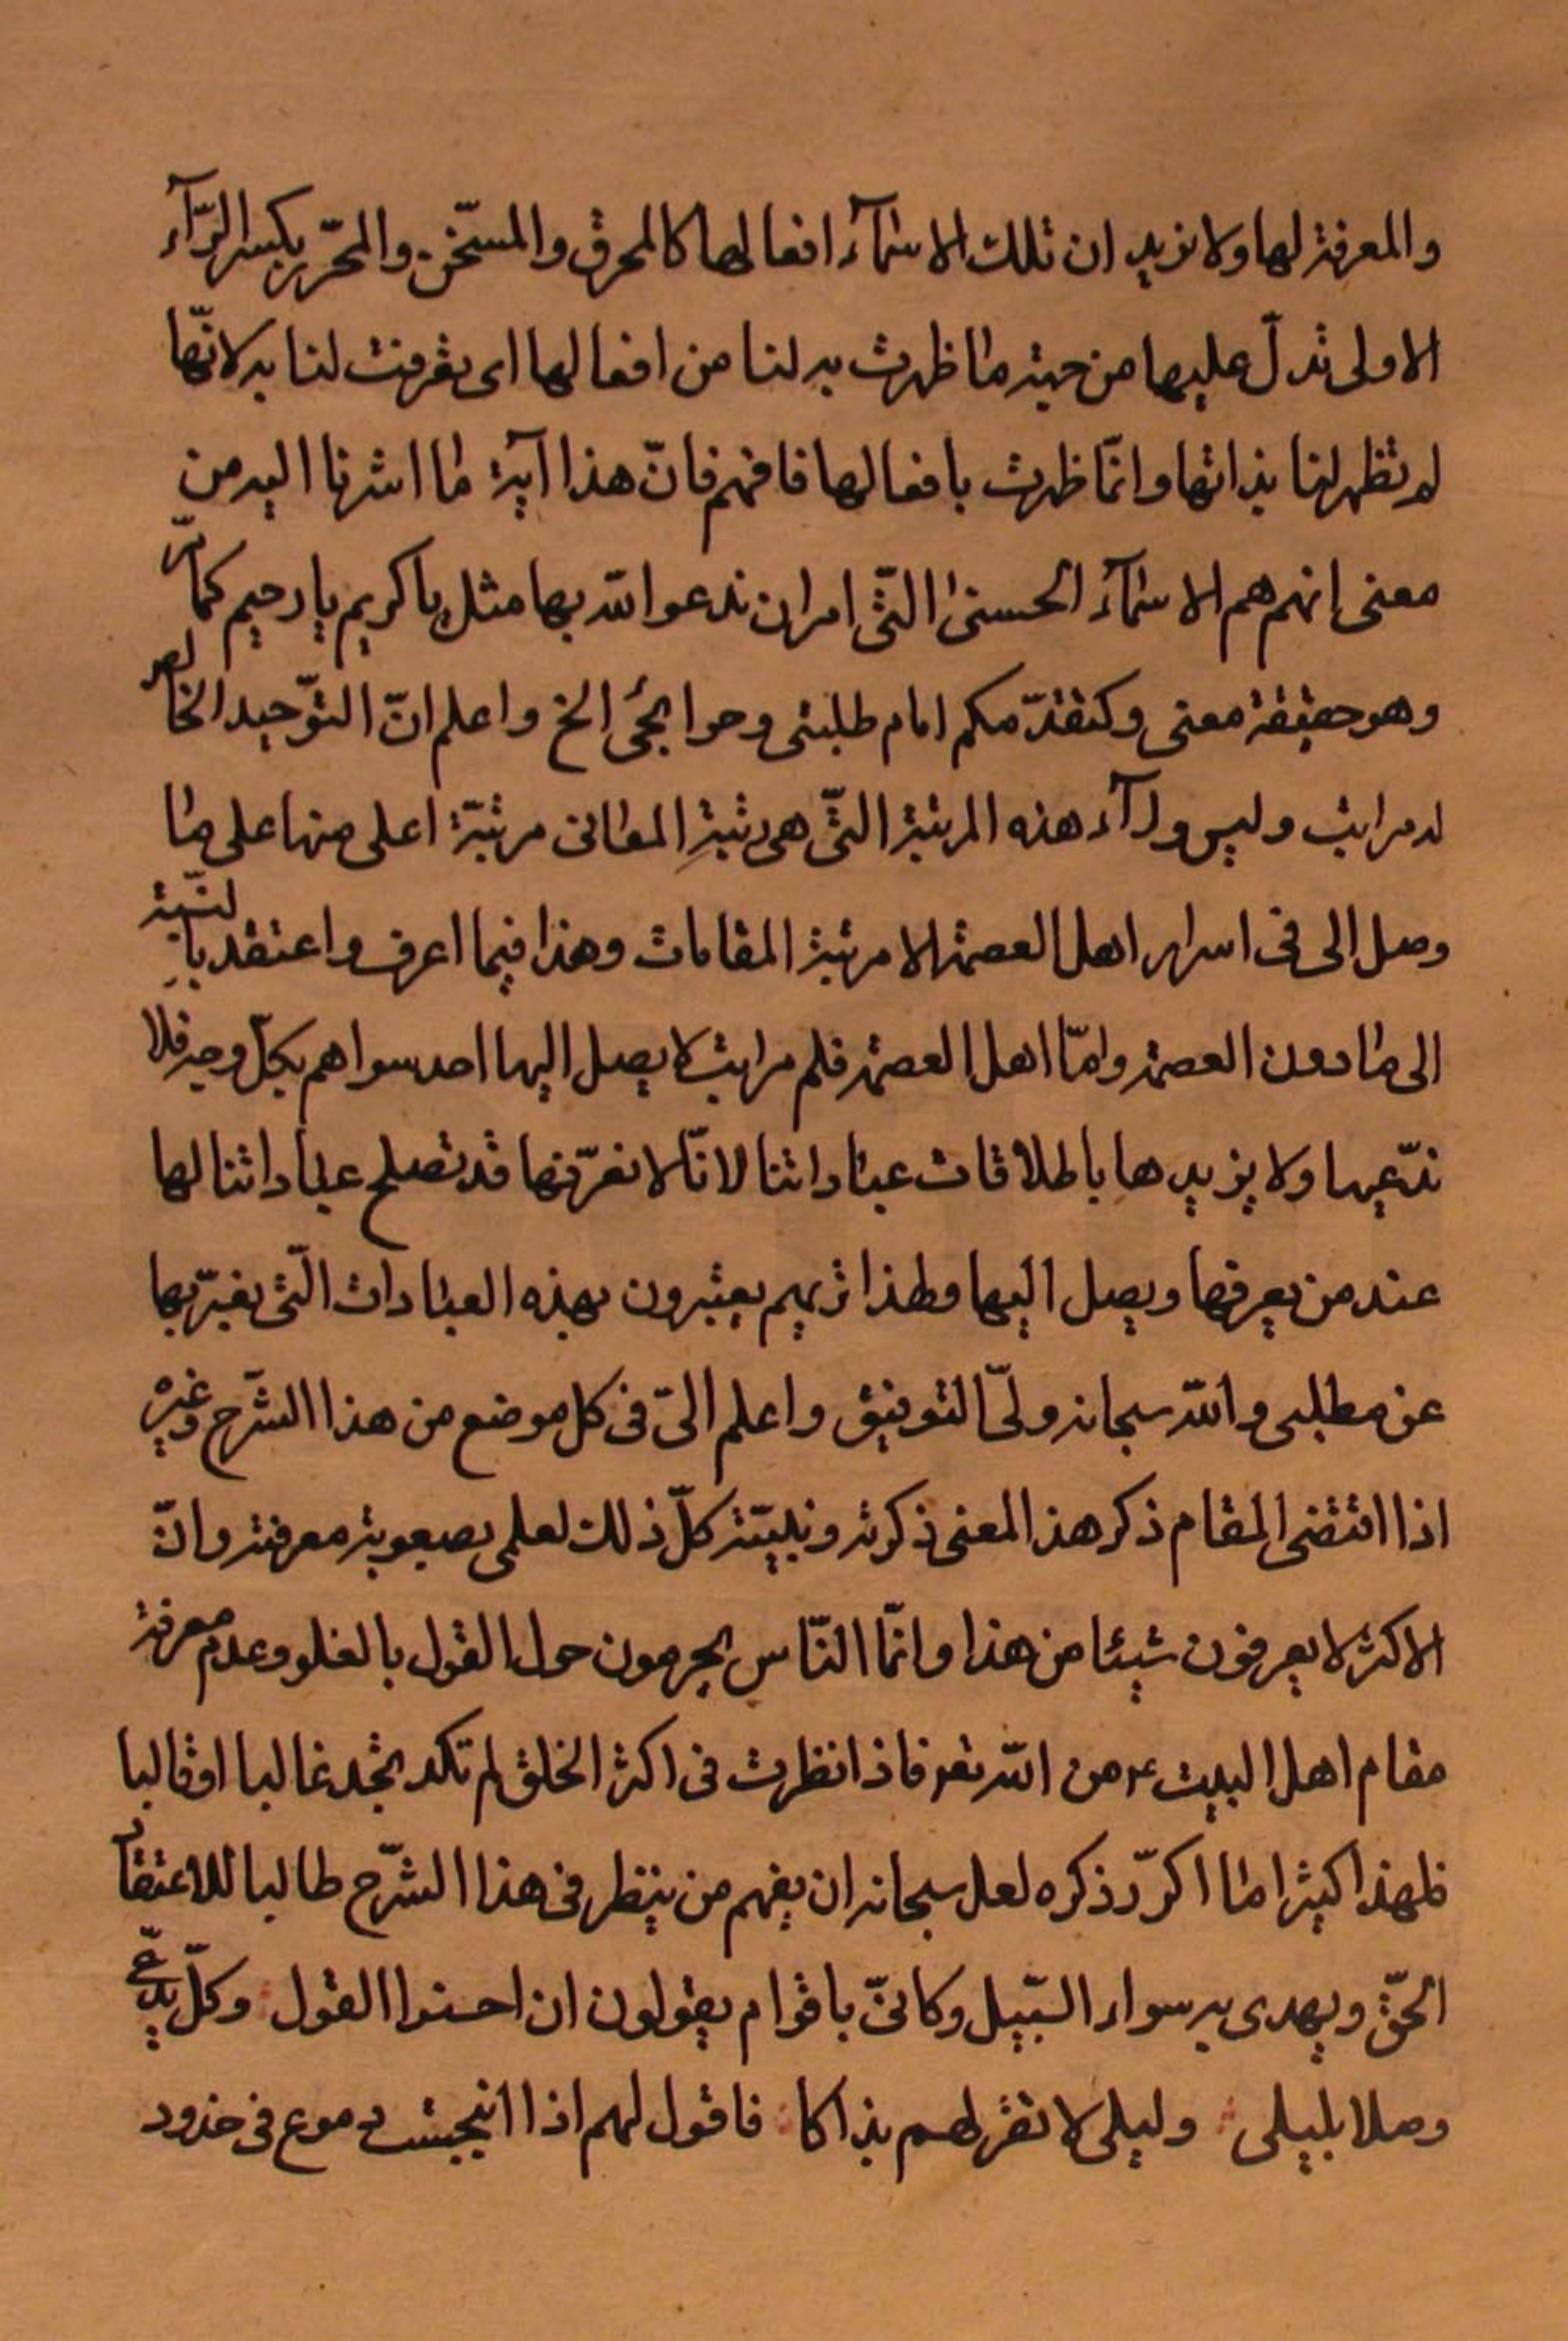 والمعرفة لها ولا نريد ان تلك الاسمآء افعالها كالمحرق والمسخّن والمحرّر بكسر الرّآء
الاولى تدلّ عليها من حيث ما ظهرت به لنا من افعالها اى تعرفت لنا به لانّها
لم تظهر لنا بذاتها وانّما ظهرت بافعالها فافهم فانّ هذا آية ما اشرنا اليه من
معنى إنهم هم الاسمآء الحسنى الّتى امر ان ندعو الله بها مثل يا كريم يا رحيم كما مرّ
وهو حقيقة معنى وكتقدّمكم امام طلبتى وحوايجى الخ واعلم انّ التوّحيد الخالص
له مراتب وليس ورآء هذه المرتبة التّى هى رتبةِ المعانى مرتبة اعلى منها على ما
وصل الى فى اسرار اهل العصمة الا مرتبة المقامات وهذا فيما اعرف واعتقد بالنّسبة
الى ما دون العصمة وامّا اهل العصمة فلهم مراتب لا يصل اليها احد سواهم بكلّ وجه فلا
ندّعيها ولا نريدها باطلاقات عباراتنا لانّا لا نعرّفها قد تصلح عباراتنا لها
عند من يعرفها ويصل اليها ولهذا تريهم يعبّرون بهذه العبارات الّتى نعبّر بها
عن مطلبى والله سبحانه ولىّ التوفيق واعلم انّى فى كل موضع من هذا الشّرح وغيره
اذا اقتضى المقام ذكر هذا المعنى ذكرته وبيّنته كلّ ذلك لعلمى بصعوبة معرفته وانّ
الاكثر لا يعرفون شيئا من هذا وانّما النّاس يحومون حول القول بالغلو وعدم معرفة
مقام اهل البيت ع من الله تعو فاذا نظرت فى اكثر الخلق لم تكد تجد غاليا او قاليا
فلهذا كثيرا ما اكرّر ذكره لعل سبحانه ان يفهم من ينظر فى هذا الشّرح طالبا للاعتقاد
الحقّ ويهدى به سواء السّبيل وكانىّ باقوام يقولون ان احسنوا القول وكلّ يدّعى
وصلا بليلى وليلى لا تقر لهم بذاكا فاقول لهم اذا انبجست دموع فى خدود